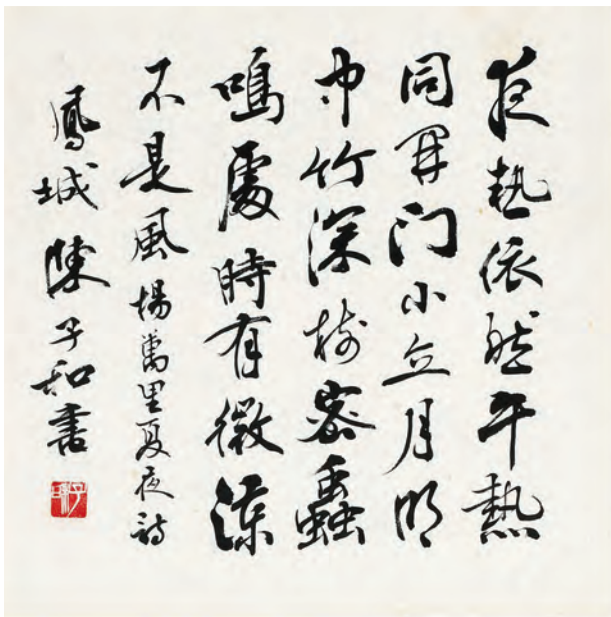 夜熱依然午熱
同開门小立月明
中竹深樹密蟲
鳴處時有微涼
不是風楊萬里夏夜詩
鳳城陳子和書